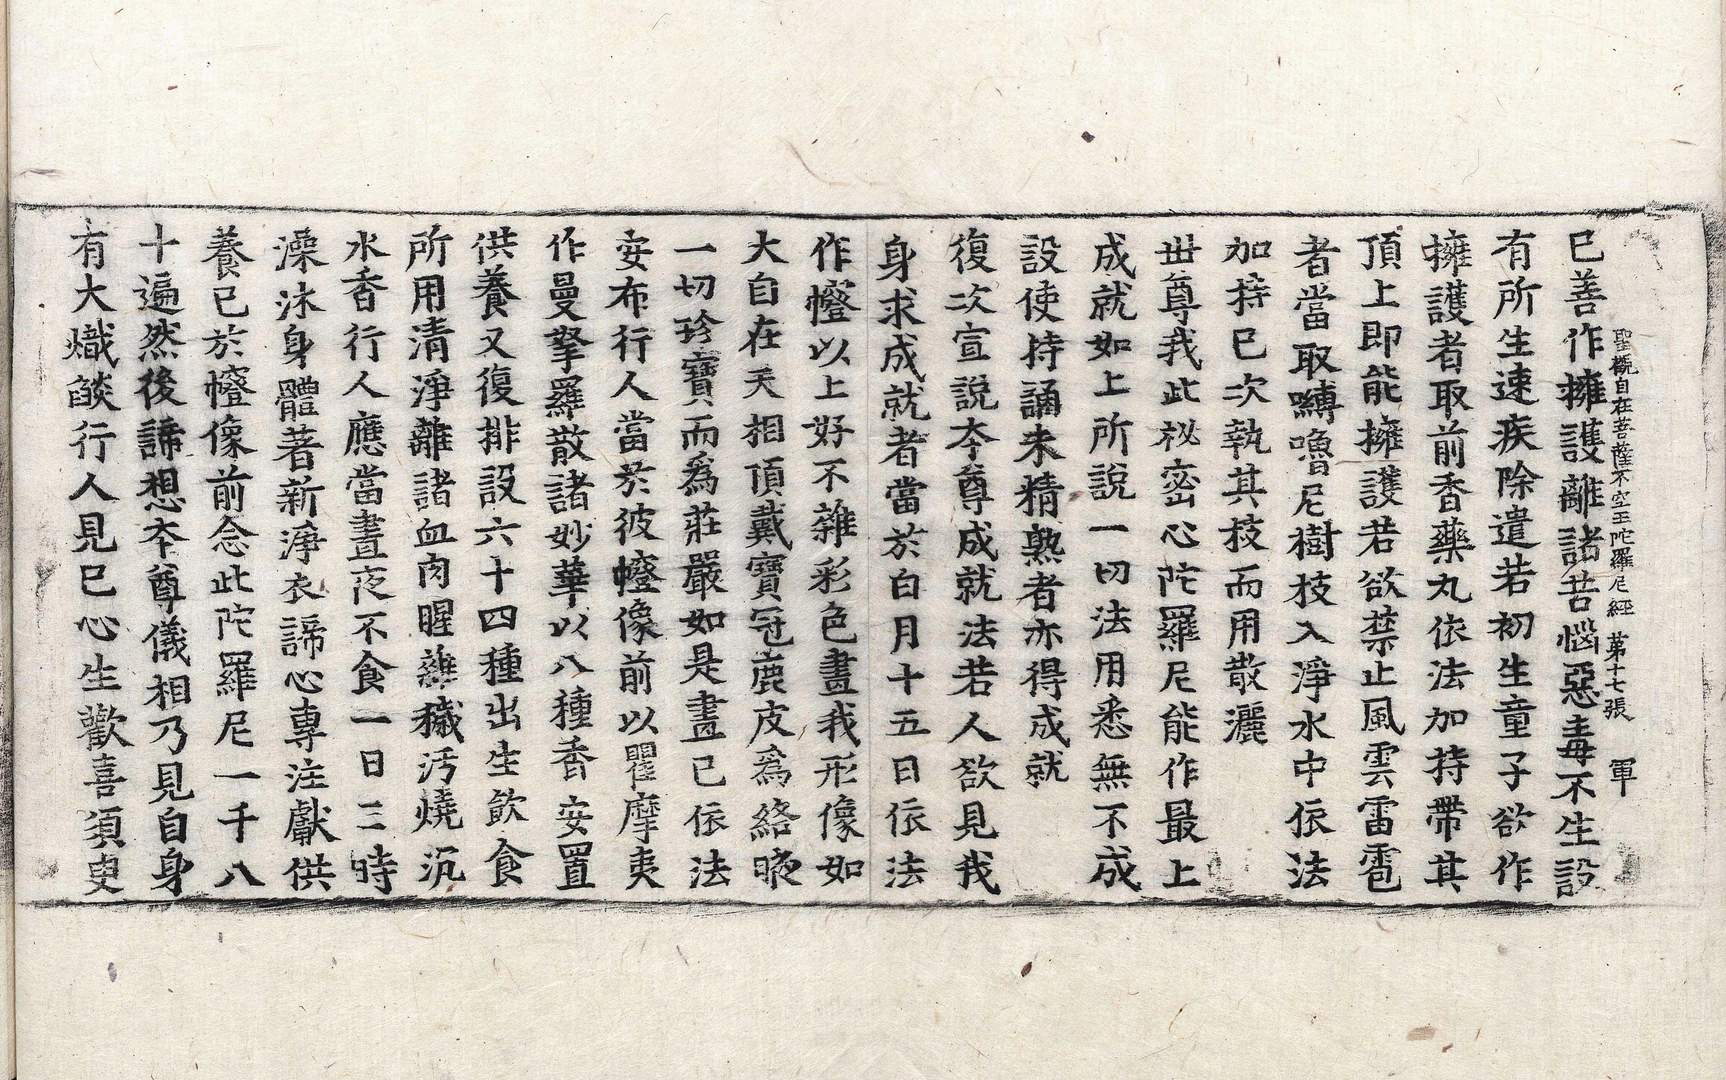 聖觀自在菩薩不空王陀羅尼經 第十七張 軍
已善作擁護離諸苦惱惡毒不生設
有所生速疾除遣若初生童子欲作
擁護者取前香藥丸依法加持帶其
頂上即能擁護若欲禁止風雲雷雹
者當取嚩嚕尼樹枝入淨水中依法
加持已次執其枝而用散灑
世尊我此祕密心陀羅尼能作最上
成就如上所說一切法用悉無不成
設使持誦未精熟者亦得成就
復次宣說夲尊成就法若人欲見我
身求成就者當於白月十五日依法
作㡧以上好不雜彩色畫我形像如
大自在天相頂戴寶冠鹿皮爲絡腋
一切珍寶而爲莊嚴如是畫已依法
安布行人當於彼㡧像前以瞿摩夷
作曼拏羅散諸妙華以八種香安置
供養又復排設六十四種出生飲食
所用清淨離諸血肉腥葷穢污燒沉
水香行人應當晝夜不食一日三時
澡沐身體著新淨衣諦心專注獻供
養已於㡧像前念此陀羅尼一千八
十遍然後諦想夲尊儀相乃見自身
有大熾燄行人見已心生歡喜須臾